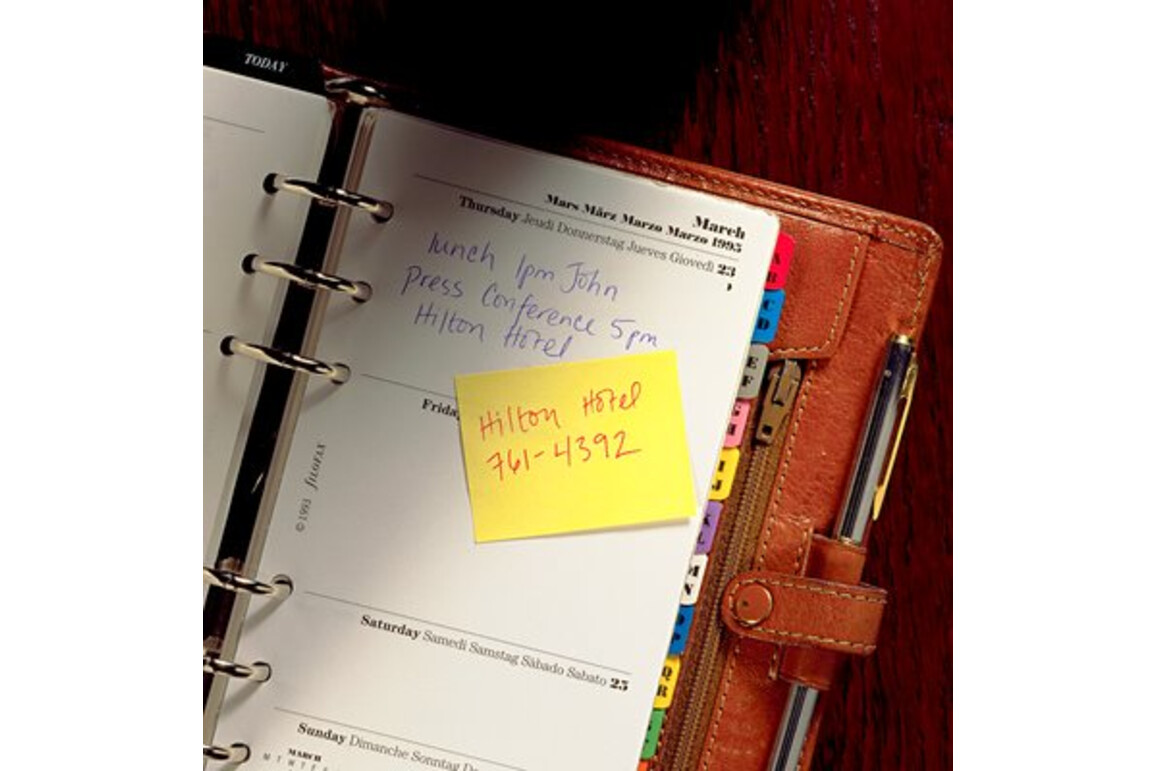 TODAY
March
Mars März Marzo Marzo 1995
Thursday Jeudi Donnerstag Jueves Giovedì 23
lunch 1pm John
Press Conference 5pm
Hilton Hotel
Hilton Hotel
761-4392
© 1993 FILOFAX
Saturday Samedi Samstag Sàbado Sabato 25
Sunday Dimanche Sonntag
MARCH
M T W T F
A
B
C
D
E
F
G
H
I
J
K
L
M
N
O
P
Q
R